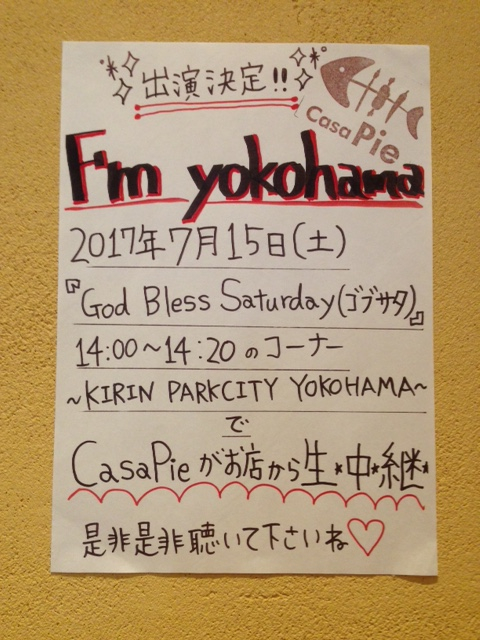 出演決定!!
Casa Pie
F'm yokohama
2017年7月15日(土)
『God Bless Saturday(ゴブサタ)』
14:00~14:20のコーナー
~KIRIN PARKCITY YOKOHAMA~
で
CasaPieがお店から生*中*継*
是非是非聴いて下さいね♡